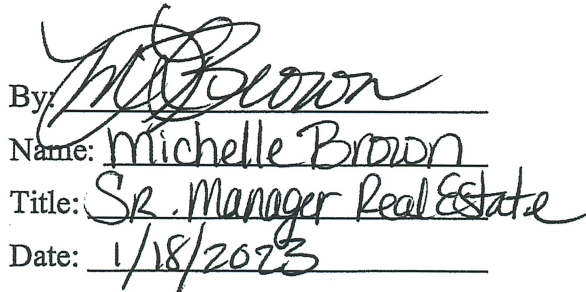 By: M Brown
Name: Michelle Brown
Title: SR. Manager Real Estate
Date: 1/18/2023